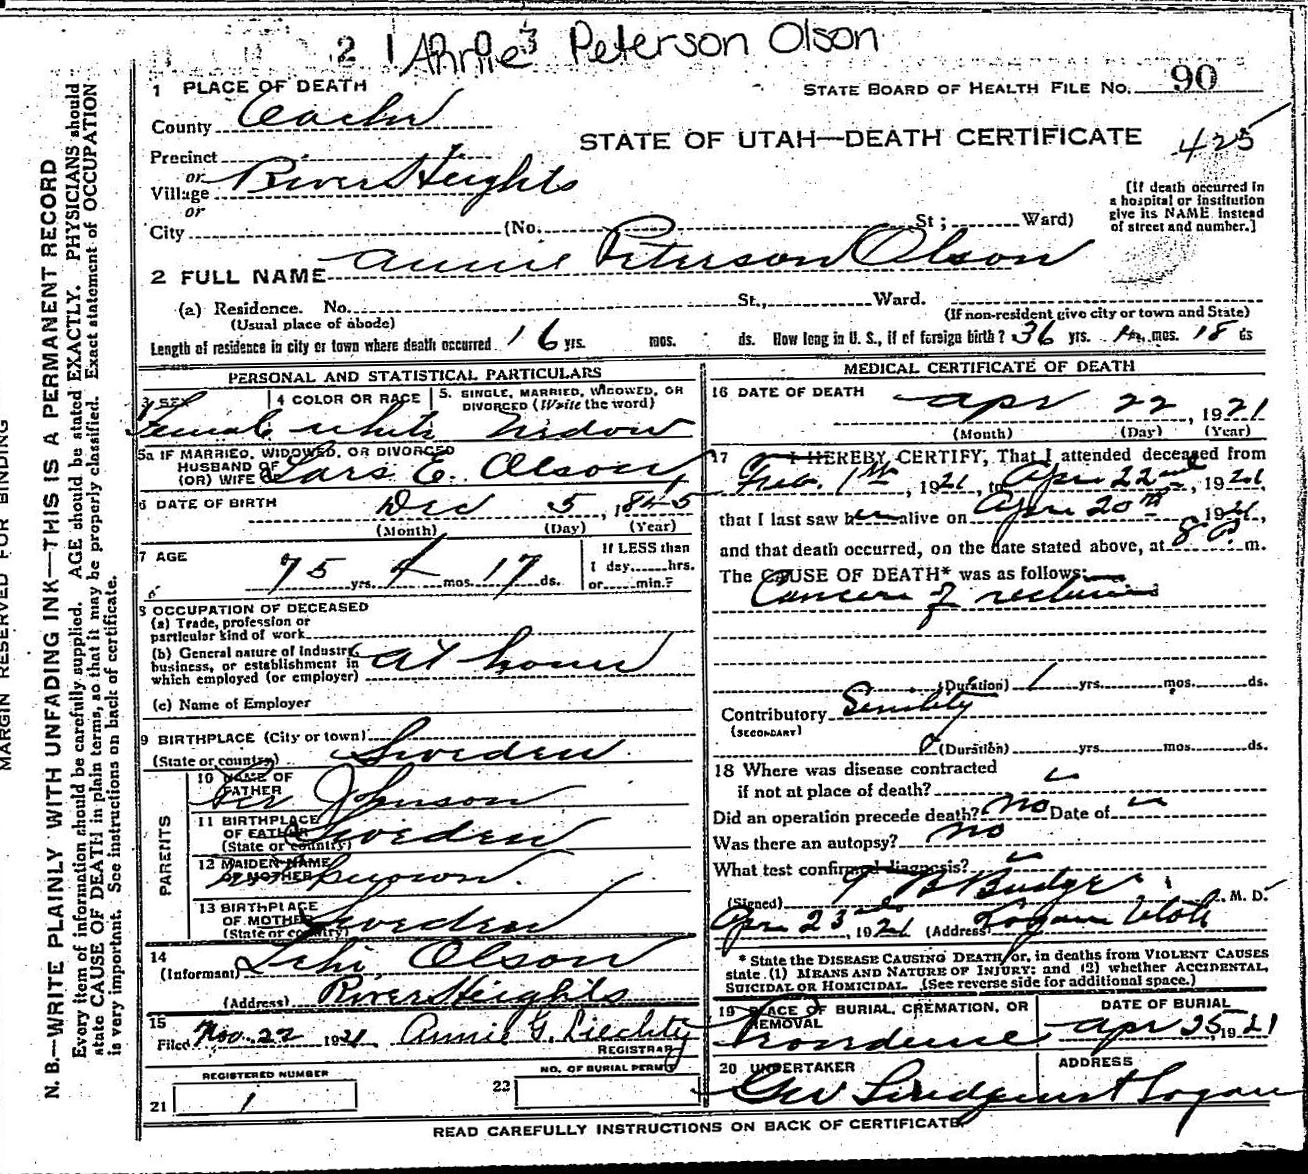 2 1 Annie 3 Peterson Olson
1 PLACE OF DEATH
STATE BOARD OF HEALTH FILE NO. 90
County Cache
STATE OF UTAH—DEATH CERTIFICATE 425
Precinct
or
Village River Heights
or
[If death occurred in
a hospital or institution
give its NAME instead
of street and number.]
City (No. St; Ward)
2 FULL NAME Annie Peterson Olson
(a) Residence. No. St., Ward.
(Usual place of abode)
(If non-resident give city or town and State)
Length of residence in city or town where death occurred 16 yrs. mos. ds. How long in U. S., if of foreign birth? 36 yrs. mos. 18 ds
PERSONAL AND STATISTICAL PARTICULARS
3 SEX
Female
4 COLOR OR RACE
white
5. SINGLE, MARRIED, WIDOWED, OR
DIVORCED (Write the word)
Widow
5a IF MARRIED, WIDOWED, OR DIVORCED
HUSBAND OF
(OR) WIFE OF Lars E. Olson
6 DATE OF BIRTH Dec 5, 1845
(Month) (Day) (Year)
7 AGE
75 yrs. 4 mos. 17 ds.
If LESS than
1 day hrs.
or min.?
8 OCCUPATION OF DECEASED
(a) Trade, profession or
particular kind of work
(b) General nature of industry,
business, or establishment in
which employed (or employer) at home
(c) Name of Employer
9 BIRTHPLACE (City or town)
(State or country) Sweden
PARENTS
10 NAME OF
FATHER Per Johnson
11 BIRTHPLACE
OF FATHER
(State or country) Sweden
12 MAIDEN NAME
OF MOTHER unknown
13 BIRTHPLACE
OF MOTHER
(State or country) Sweden
14
(Informant) Lehi Olson
(Address) River Heights
15
Filed Nov. 22 1921 Annie G. Liechty
REGISTRAR
REGISTERED NUMBER
21 1
NO. OF BURIAL PERMIT
22
MEDICAL CERTIFICATE OF DEATH
16 DATE OF DEATH
Apr 22, 1921
(Month) (Day) (Year)
17 I HEREBY CERTIFY, That I attended deceased from
Feb. 1st, 1921, to Apr 22nd, 1921,
that I last saw her alive on Apr 20th 1921,
and that death occurred, on the date stated above, at 8 P. m.
The CAUSE OF DEATH* was as follows:
Cancer of rectum
(Duration) 1 yrs. mos. ds.
Contributory Senility
(SECONDARY)
(Duration) yrs. mos. ds.
18 Where was disease contracted
if not at place of death?
Did an operation precede death? no Date of
Was there an autopsy? no
What test confirmed diagnosis?
(Signed) T B Budge, M. D.
Apr 23, 1921 (Address) Logan Utah
* State the DISEASE CAUSING DEATH, or, in deaths from VIOLENT CAUSES
state (1) MEANS AND NATURE OF INJURY; and (2) whether ACCIDENTAL,
SUICIDAL OR HOMICIDAL. (See reverse side for additional space.)
19 PLACE OF BURIAL, CREMATION, OR
REMOVAL
Providence
DATE OF BURIAL
Apr 25, 1921
20 UNDERTAKER
Geo Lindquist
ADDRESS
Logan
READ CAREFULLY INSTRUCTIONS ON BACK OF CERTIFICATE.
MARGIN RESERVED FOR BINDING
N. B.—WRITE PLAINLY WITH UNFADING INK—THIS IS A PERMANENT RECORD
Every item of information should be carefully supplied. AGE should be stated EXACTLY. PHYSICIANS should
state CAUSE OF DEATH in plain terms, so that it may be properly classified. Exact statement of OCCUPATION
is very important. See instructions on back of certificate.